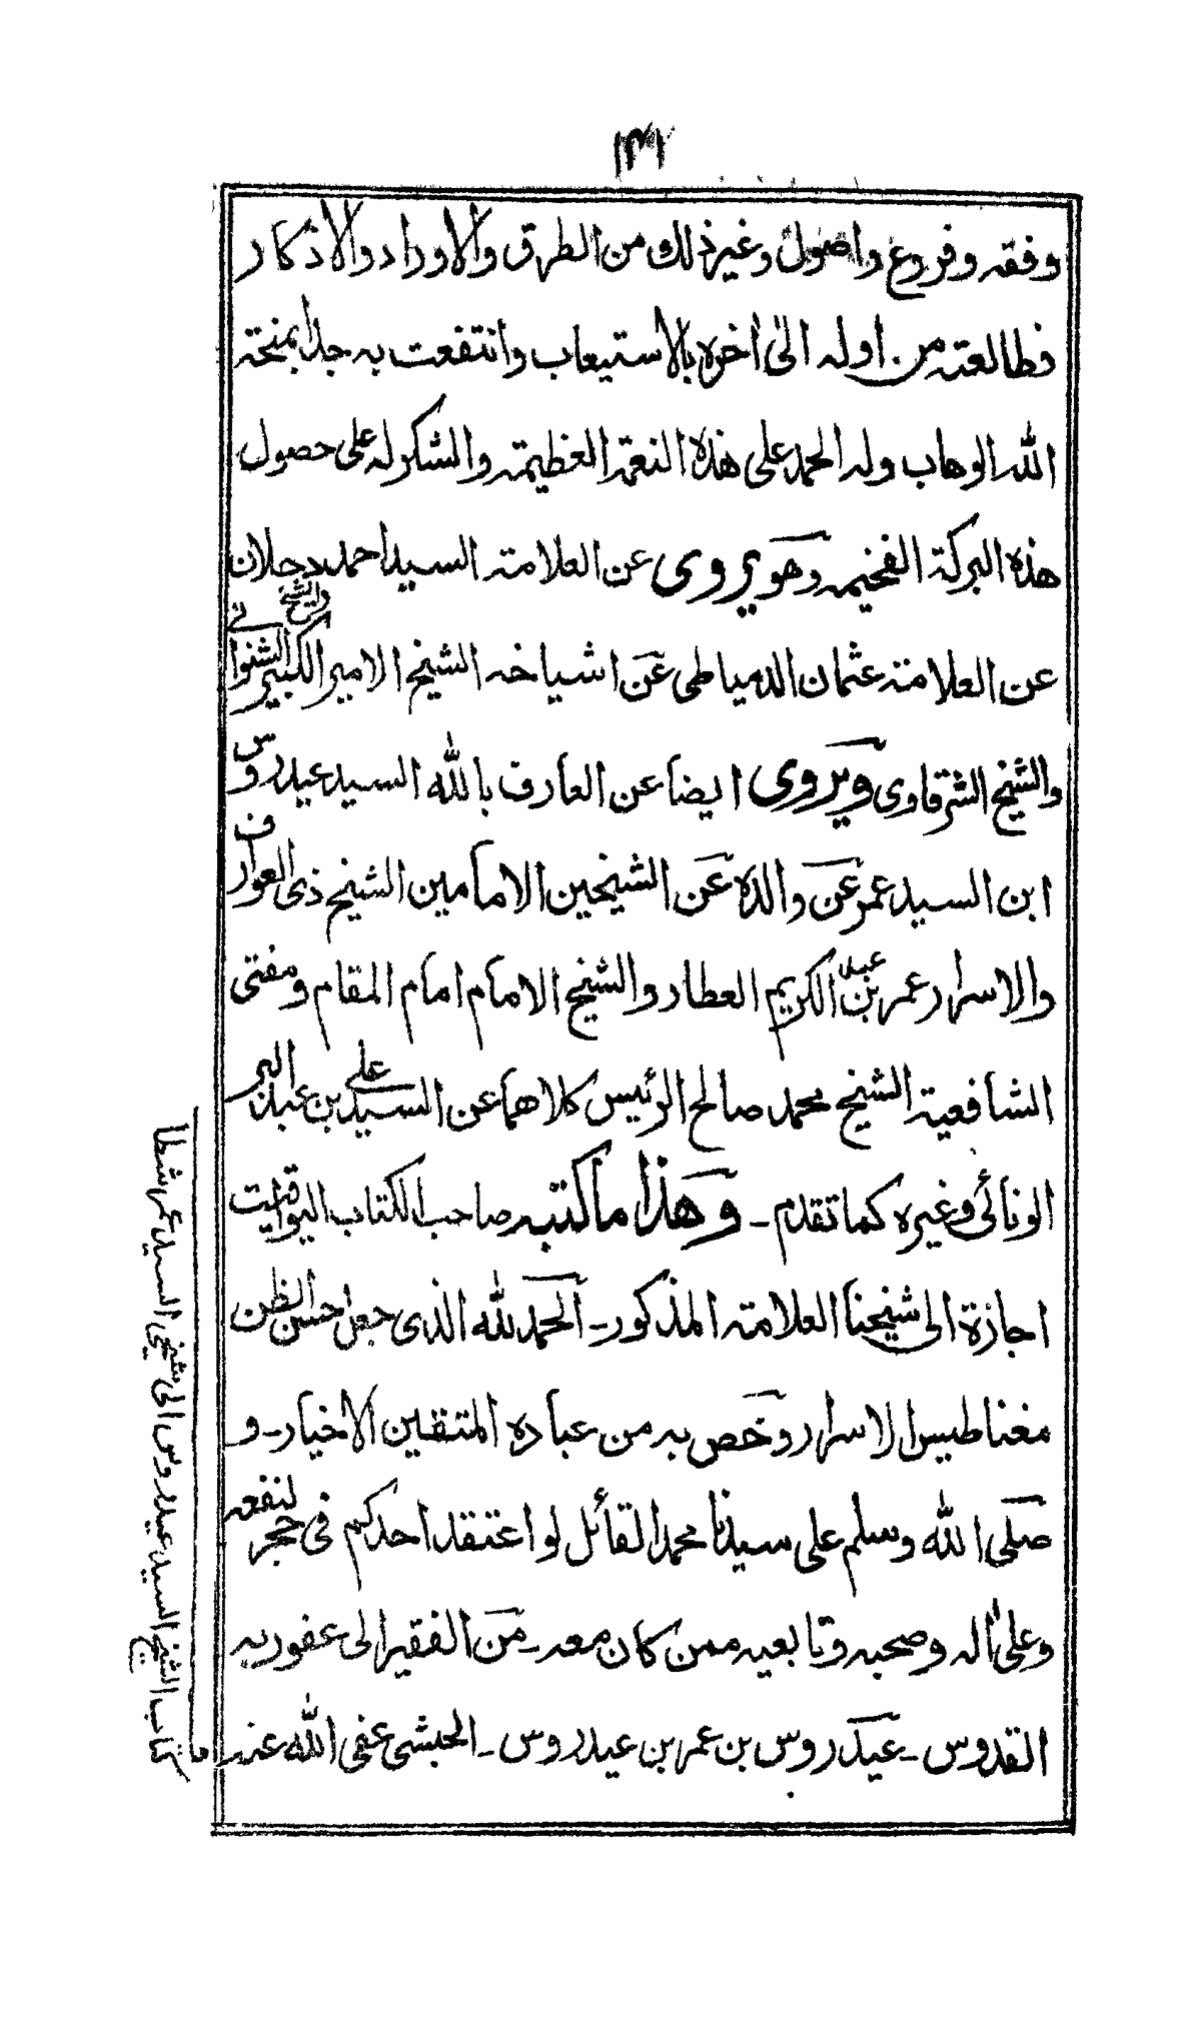 ١٣٢
وفقه وفروع واصول وغير ذلك من الطرق والاوراد والاذكار
فطالعته من اوله الى اخره بالاستيعاب وانتفعت به جدا بمنحة
الله الوهاب وله الحمد على هذه النعمة العظيمة والشكر له على حصول
هذه البركة الفخيمه وهو يروى عن العلامة السيد احمد دحلان
عن العلامة عثمان الدمياطى عن اشياخه الشيخ الامير الكبير والشيخ الشنوانے
والشيخ الشرقاوى ويروى ايضا عن العارف بالله السيد عيدروس
ابن السيد عمر عن والده عن الشيخين الامامين الشيخ ذى العوارف
والاسرار عمر بن عبد الكريم العطار والشيخ الامام امام المقام ومفتى
الشافعية الشيخ محمد صالح الرئيس كلاهما عن السيد على بن عبد البر
الونائى وغيره كما تقدم - وهذا ما كتبه صاحب الكتاب اليواقيت
اجازة الى شيخنا العلامة المذكور - الحمد لله الذى جعل حسن الظن
مغناطيس الاسرار وخص به من عباده المتقين الاخيار - و
صلى الله وسلم على سيدنا محمد القائل لو اعتقد احدكم فى حجر لنفعه
وعلى أله وصحبه وتابعيه ممن كان معه - من الفقير الى عفو ربه
القدوس - عيدروس بن عمر بن عيدروس - الحبشى عفى الله عنه
ما كتاب الشيخ السيد عيدروس الى شيخى السيد عمر شطا